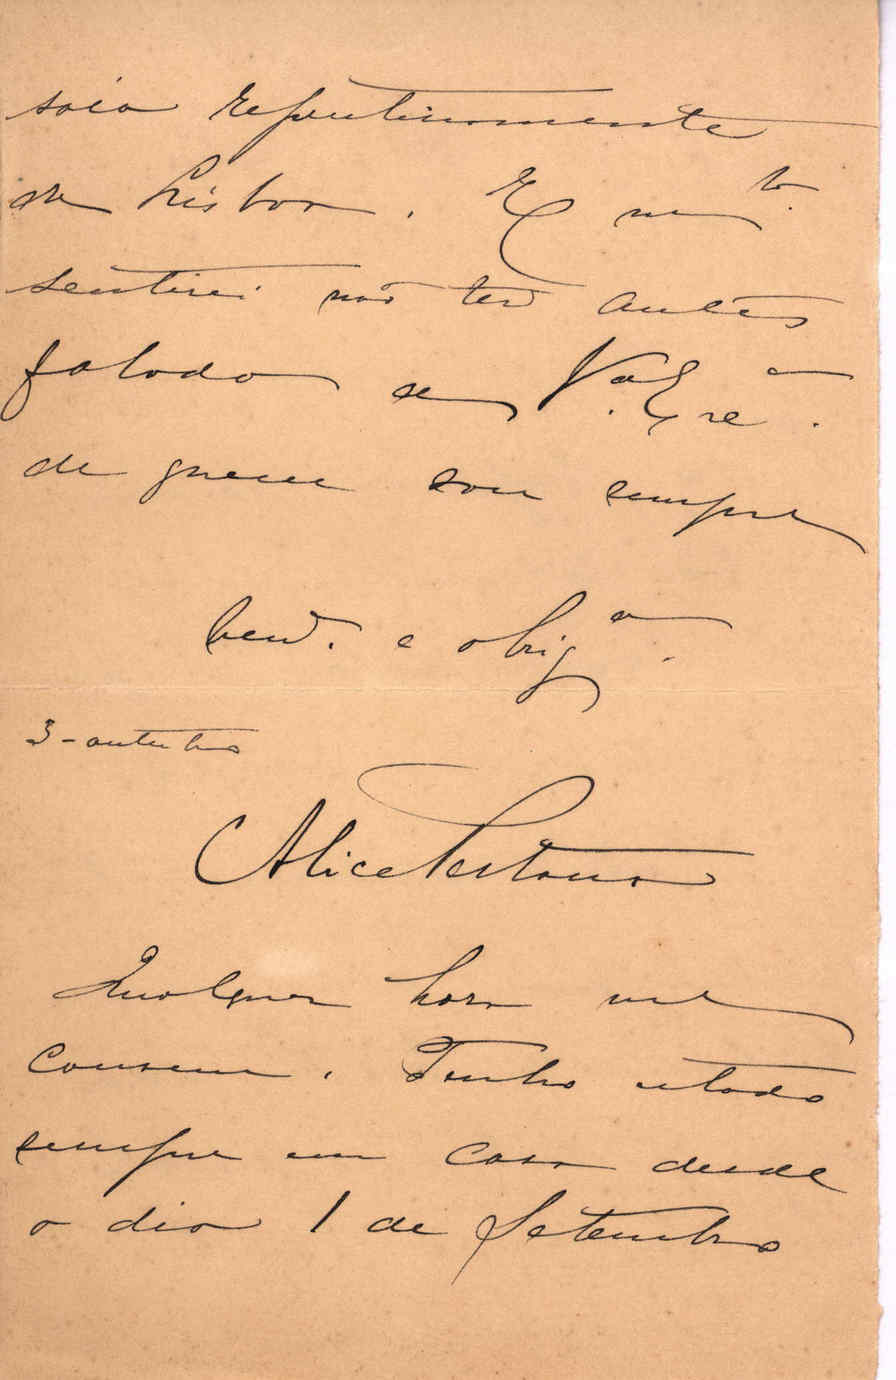 saia repentinamente
de Lisboa. E m.to
sentirei não ter antes
falado a V.a Ex.cia.
de quem sou sempre
e obrig.a
3 - outubro
Alice Pestana
Qualquer hora me
convem. Tenho estado
sempre em casa desde
o dia 1 de Setembro